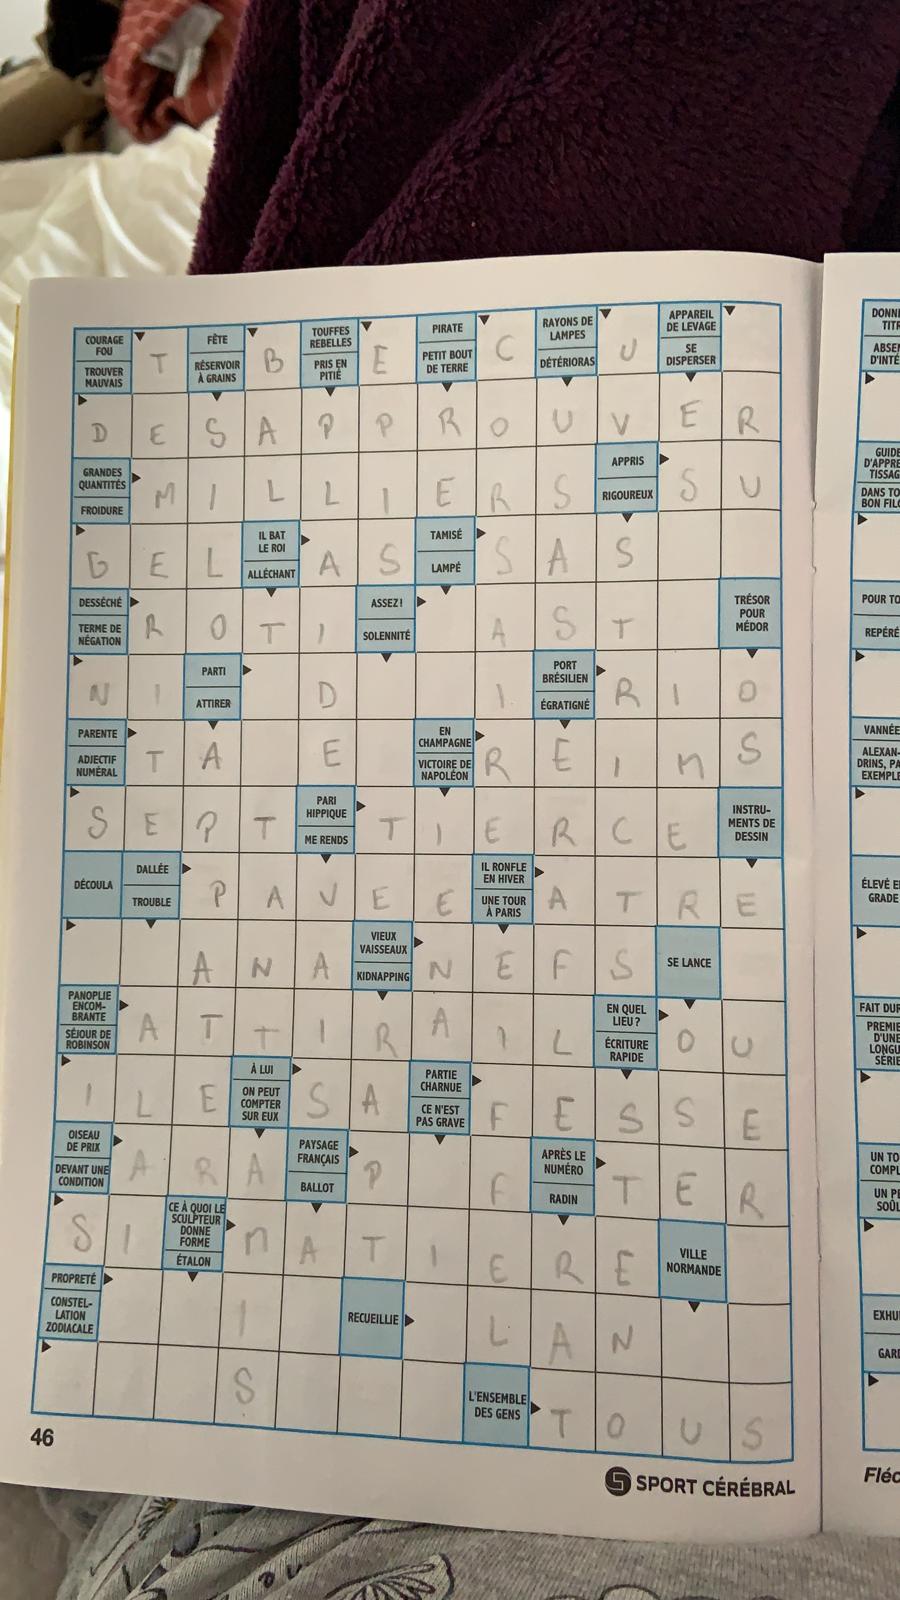 COURAGE FOU
TROUVER MAUVAIS
T
FÊTE
RÉSERVOIR À GRAINS
B
TOUFFES REBELLES
PRIS EN PITIÉ
E
PIRATE
PETIT BOUT DE TERRE
C
RAYONS DE LAMPES
DÉTÉRIORAS
U
APPAREIL DE LEVAGE
SE DISPERSER
D E S A P P R O U V E R
GRANDES QUANTITÉS
FROIDURE
M I L L I E R S
APPRIS
RIGOUREUX
S U
G E L
IL BAT LE ROI
ALLÉCHANT
A S
TAMISÉ
LAMPÉ
S A S
DESSÉCHÉ
TERME DE NÉGATION
R O T I
ASSEZ !
SOLENNITÉ
A S T
TRÉSOR POUR MÉDOR
N I
PARTI
ATTIRER
D I
PORT BRÉSILIEN
ÉGRATIGNÉ
R I O
PARENTE
ADJECTIF NUMÉRAL
T A E
EN CHAMPAGNE
VICTOIRE DE NAPOLÉON
R E I M S
S E P T
PARI HIPPIQUE
ME RENDS
T I E R C E
INSTRU-
MENTS DE DESSIN
DÉCOULA
DALLÉE
TROUBLE
P A V E E
IL RONFLE EN HIVER
UNE TOUR À PARIS
A T R E
A N A
VIEUX VAISSEAUX
KIDNAPPING
N E F S
SE LANCE
PANOPLIE ENCOM-
BRANTE
SÉJOUR DE ROBINSON
A T T I R A I L
EN QUEL LIEU ?
ÉCRITURE RAPIDE
O U
I L E
À LUI
ON PEUT COMPTER SUR EUX
S A
PARTIE CHARNUE
CE N'EST PAS GRAVE
F E S S E
OISEAU DE PRIX
DEVANT UNE CONDITION
A R A
PAYSAGE FRANÇAIS
BALLOT
P F
APRÈS LE NUMÉRO
RADIN
T E R
S I
CE À QUOI LE SCULPTEUR DONNE FORME
ÉTALON
M A T I E R E
VILLE NORMANDE
PROPRETÉ
CONSTEL-
LATION ZODIACALE
I
RECUEILLIE
L A N
S
L'ENSEMBLE DES GENS
T O U S
46
SPORT CÉRÉBRAL